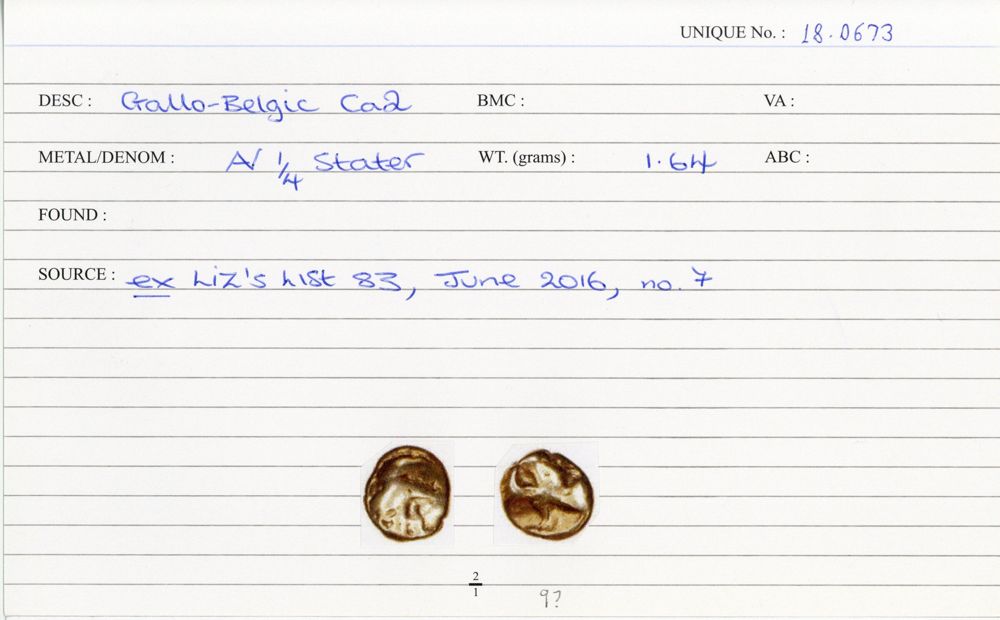 UNIQUE No. : 18.0673
DESC : Gallo-Belgic Ca2 BMC : VA :
METAL/DENOM : A/ 1/4 Stater WT. (grams) : 1.64 ABC :
FOUND :
SOURCE : ex Liz's List 83, June 2016, no. 7
2
1
9?